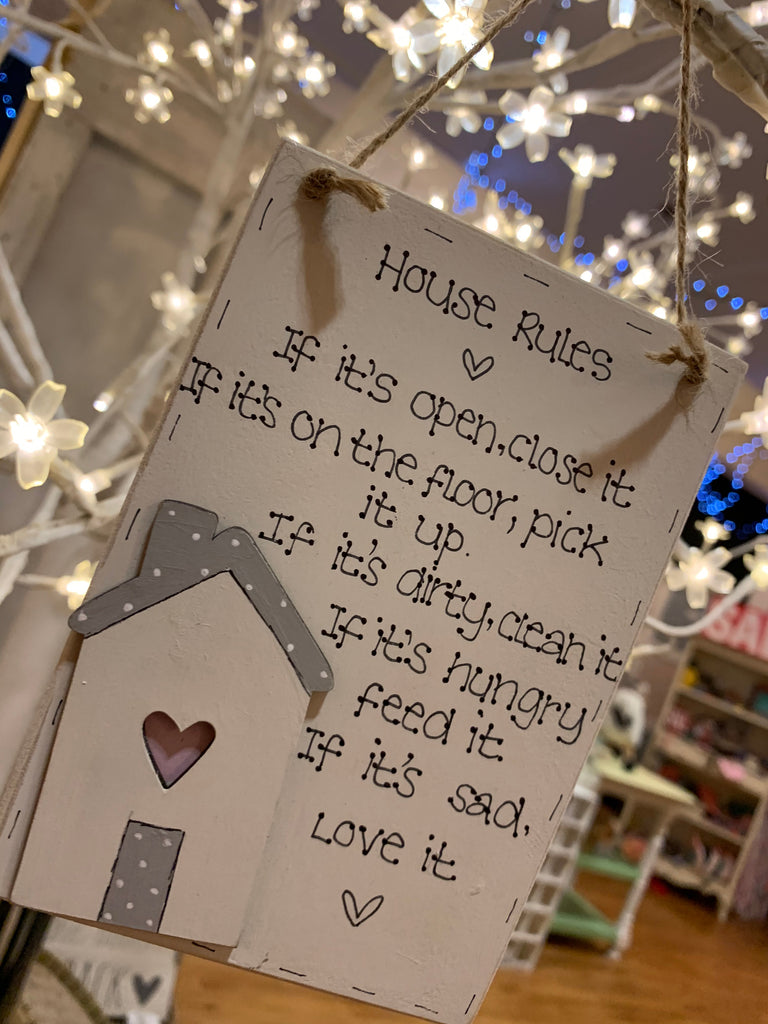 House Rules
If it's open, close it
If it's on the floor, pick
it up.
If it's dirty, clean it
If it's hungry
feed it
If it's sad,
Love it